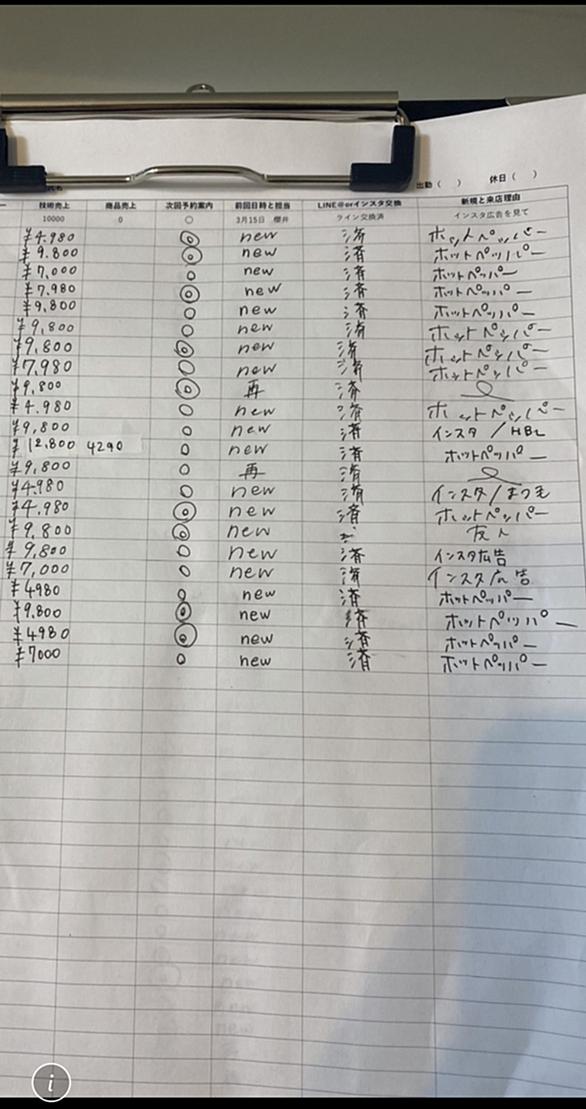 出勤（　）　休日（　）
技術売上　商品売上　次回予約案内　前回日時と担当　LINE@orインスタ交換　新規と来店理由
10000　0　○　3月15日 櫻井　ライン交換済　インスタ広告を見て
¥4.980　◎　new　済　ホットペッパー
¥9.800　◎　new　済　ホットペッパー
¥7,000　○　new　済　ホットペッパー
¥7.980　◎　new　済　ホットペッパー
¥9,800　○　new　済　ホットペッパー
¥9,800　○　new　済　ホットペッパー
¥9,800　◎　new　済　ホットペッパー
¥7,980　○　new　済　ホットペッパー
¥9,800　◎　再　済
¥4.980　○　new　済　ホットペッパー
¥9,800　○　new　済　インスタ/HBL
¥12.800　4290　○　new　済　ホットペッパー
¥9,800　○　再　済
¥4.980　○　new　済　インスタ/まつ毛
¥4.980　◎　new　済　ホットペッパー
¥9.800　◎　new　友人
¥9,800　○　new　済　インスタ広告
¥7,000　○　new　済　インスタ広告
¥4980　○　new　済　ホットペッパー
¥9.800　◎　new　済　ホットペッパー
¥4980　◎　new　済　ホットペッパー
¥7000　○　new　済　ホットペッパー